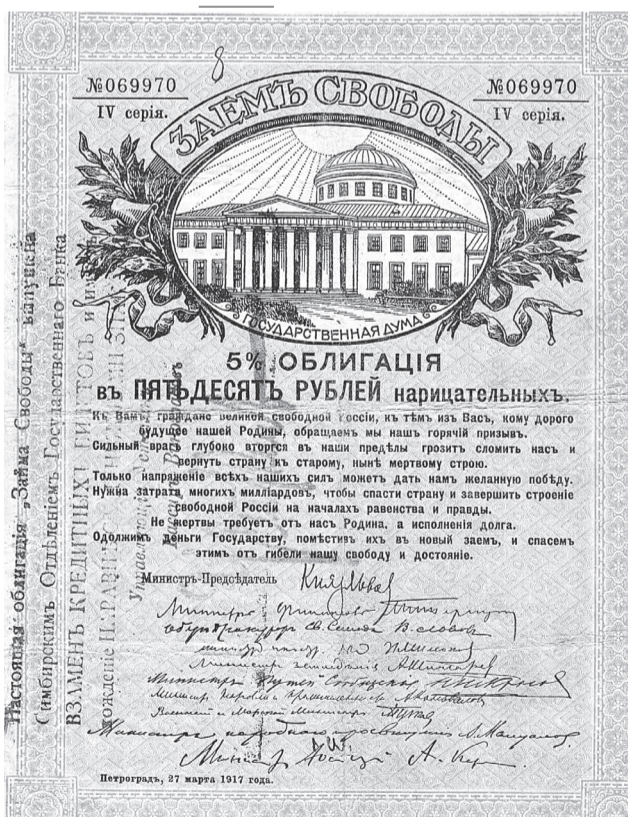 №069970
IV серія.
№069970
IV серія.
8
ЗАЕМЪ СВОБОДЫ
ГОСУДАРСТВЕННАЯ ДУМА
5% ОБЛИГАЦІЯ
въ ПЯТЬДЕСЯТЪ РУБЛЕЙ нарицательныхъ.
Къ Вамъ, граждане великой свободной Россіи, къ тѣмъ изъ Васъ, кому дорого
будущее нашей Родины, обращаемъ мы нашъ горячій призывъ.
Сильный врагъ глубоко вторгся въ наши предѣлы грозитъ сломить насъ и
вернуть страну къ старому, нынѣ мертвому строю.
Только напряженіе всѣхъ нашихъ силъ можетъ дать намъ желанную побѣду.
Нужна затрата многихъ милліардовъ, чтобы спасти страну и завершить строеніе
свободной Россіи на началахъ равенства и правды.
Не жертвы требуетъ отъ насъ Родина, а исполненія долга.
Одолжимъ деньги Государству, помѣстивъ ихъ въ новый заемъ, и спасемъ
этимъ отъ гибели нашу свободу и достояніе.
Министръ-Предсѣдатель Князь Львовъ
Министръ Финансовъ
Оберъ Прокуроръ Св. Синода В. Львовъ
Министръ земледѣлія А. Шингаревъ
Министръ Путей Сообщенія
Военный и Морской Министръ
Министръ народнаго просвѣщенія А. Мануйловъ
Министръ Юстиціи А. Кер
Петроградъ, 27 марта 1917 года.
Настоящая облигація „Займа Свободы" выпущена
Симбирскимъ Отдѣленіемъ Государственнаго Банка
ВЗАМЕНЪ КРЕДИТНЫХЪ БИЛЕТОВЪ и имѣетъ
хожденіе НАРАВНѢ
Управляющій